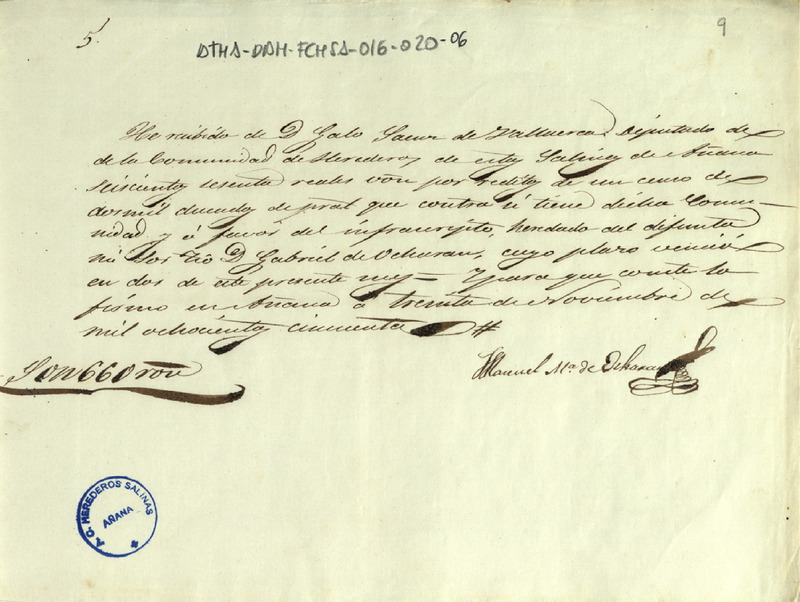 5.
ATHA-DAH-FCHSA-016-020-06
9
He recibido de D Galo Saenz de Valluerca, Diputado de
de la Comunidad de Herederos de estas Salinas de Añana
seiscientos sesenta reales von por reditos de un censo de
dos mil ducados de pral que contra si tiene dicha Comu-
nidad y á favor del infrascripto heredado del difunto
mi Sor Tio D Gabriel de Ocharan, cuyo plazo venció
en dos de este presente mes = Y para que conste lo
firmo en Añana á treinta de Noviembre de
mil ochocientos cincuenta #
Son 660 r von
Manuel Ma. de Ocharan
A. C. HEREDEROS SALINAS
AÑANA